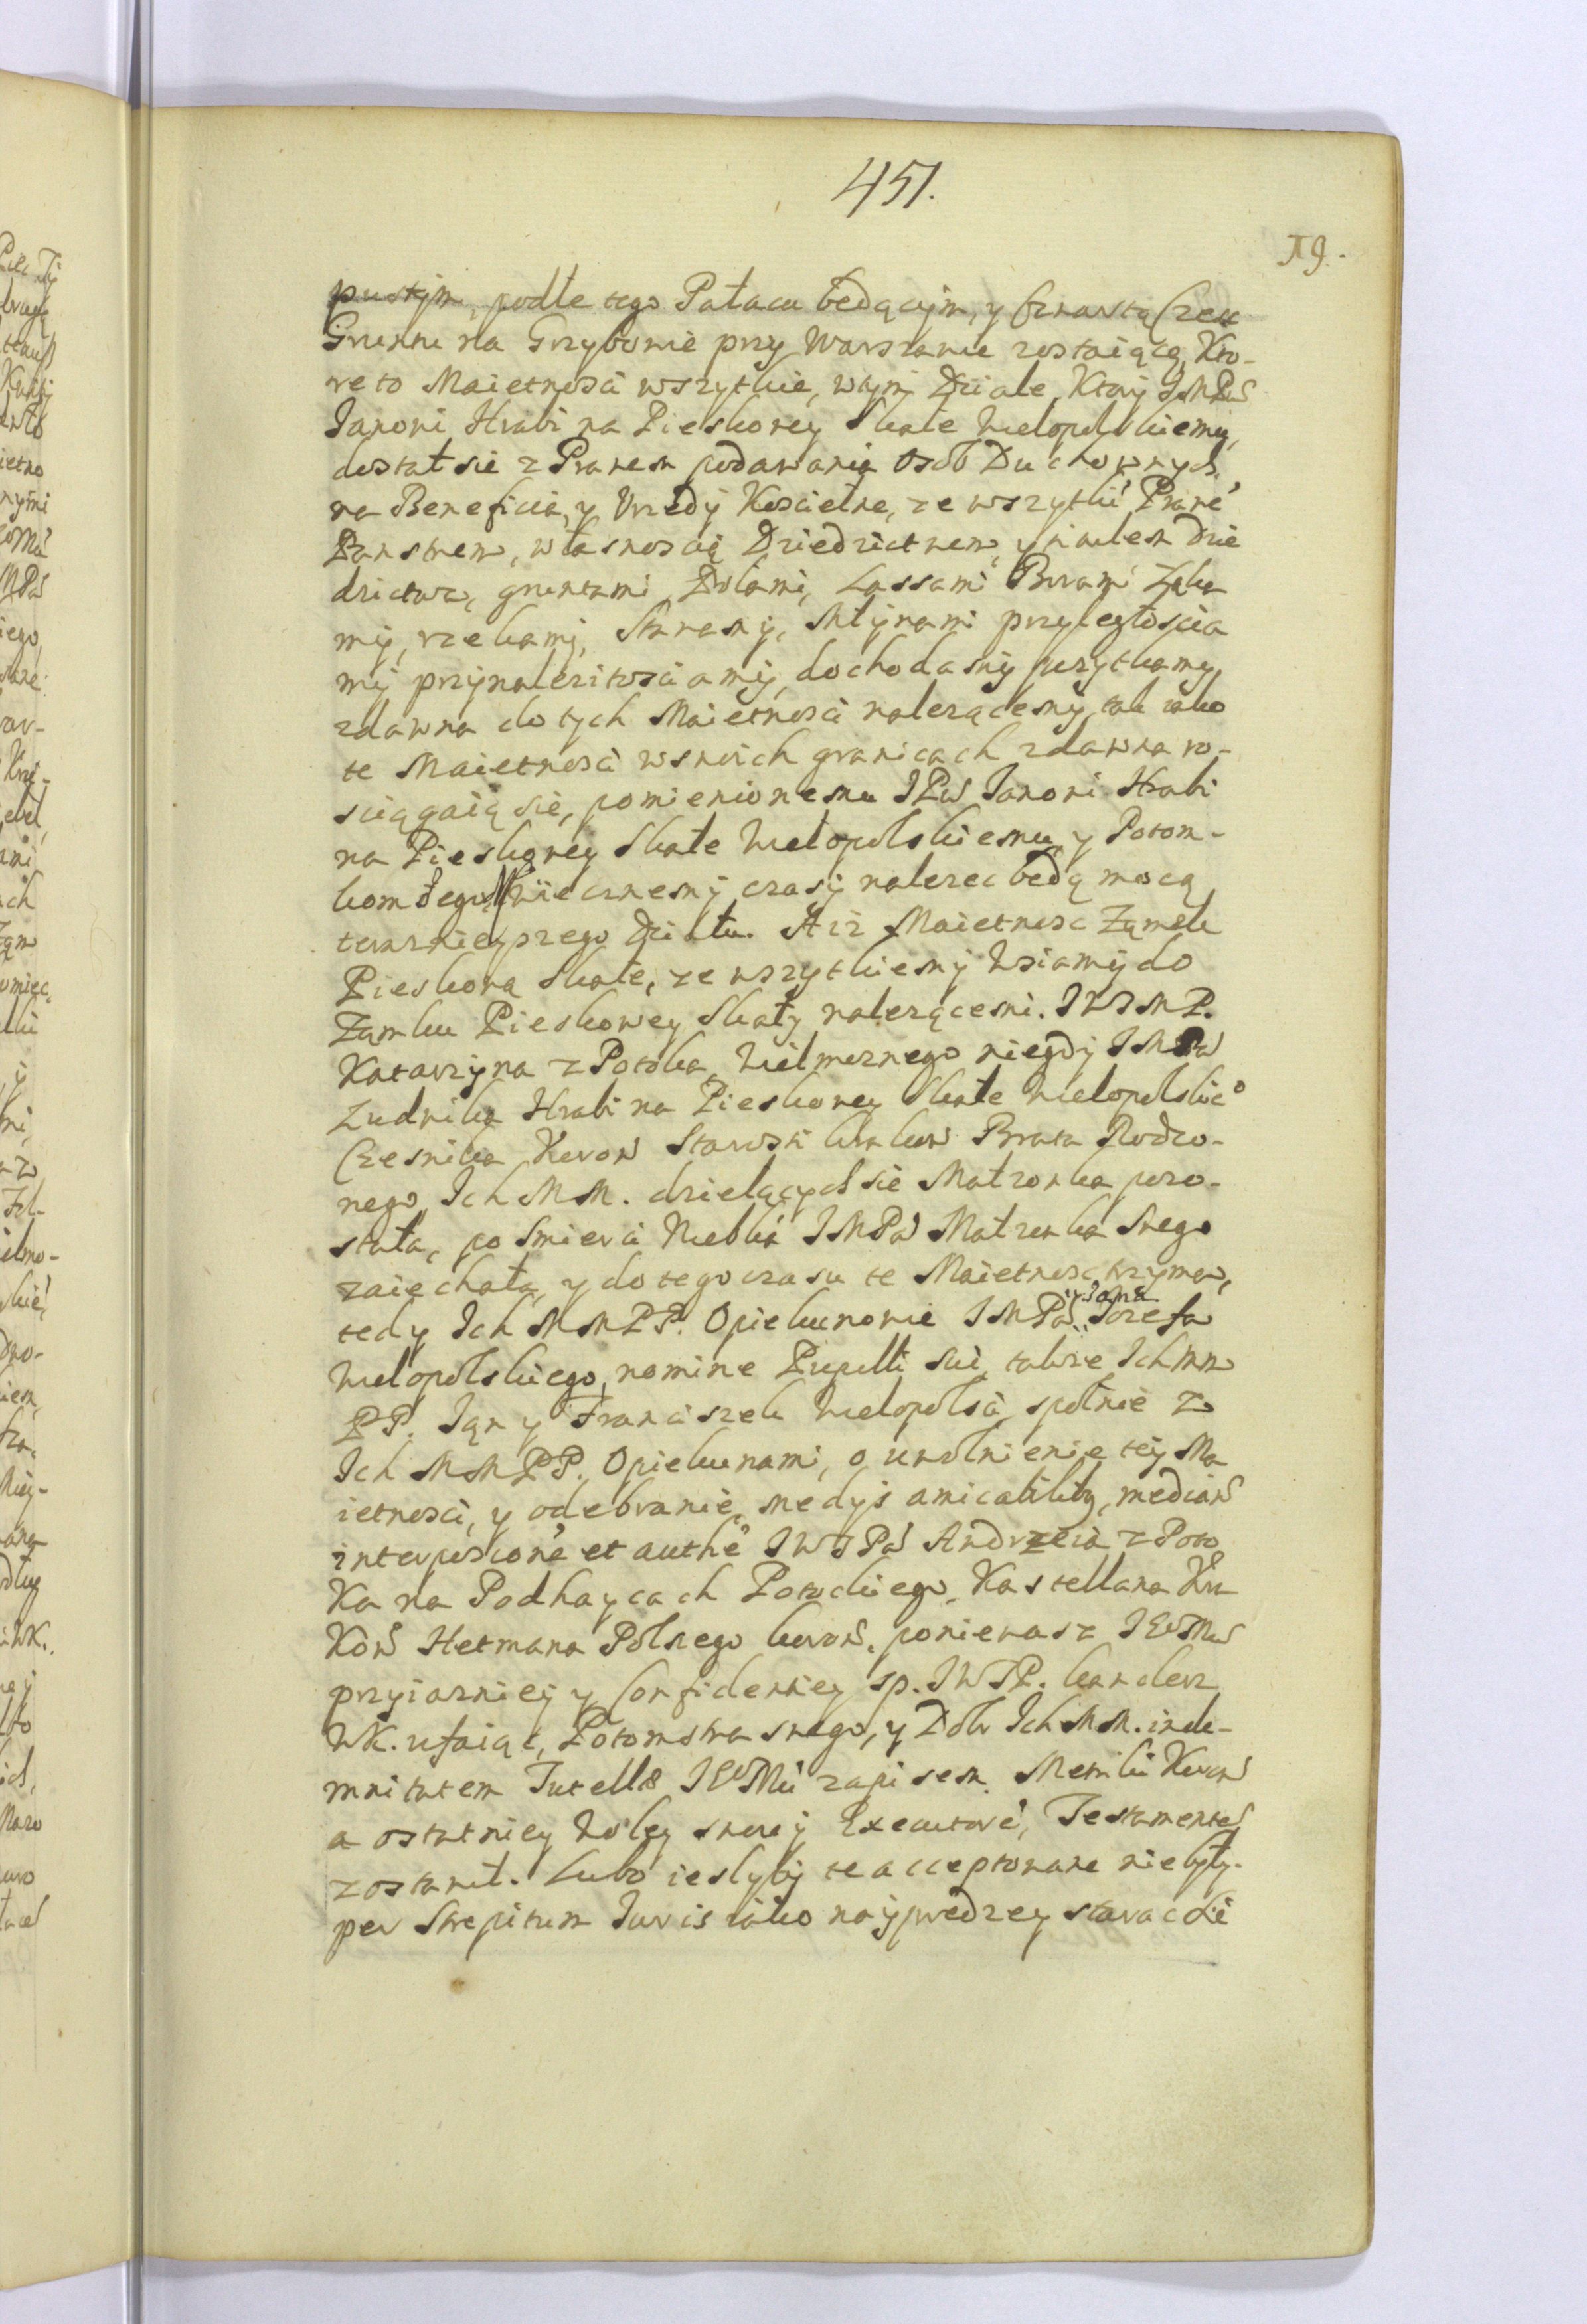 451.
19.
pustym, podle tego Pałacu będącym, y Czwartą Częsc
Gruntu na Grzybowie przy Warszawie zostaiącą, Kto-
re to Maietnosci wszytkie, w tym Dziale, Ktory JMPW
Janowi Hrabi na Pieskowey Skale Wielopolskiemu,
dostał sie z Prawem podawania Osob Duchownych
na Beneficia, y Vrzedy Koscielne, ze wszytkie Prawe
Panstwem, własnoscią Dziedzictwem, y
dzictwa, gruntami Rolami, Lassami Borami Łąka
my, rzekamj, Stawamy, Młynami przyległoscia
mj przynalezitosciamy, dochodamy pozytkamy
zdawna do tych Maietnosci nalezącemy, tak iako
te Maietnosci w swoich granicach zdawna ro-
sciągaią sie, pomienionemu JPW Janowi Hrabi
na Pieskowey Skale Wielopolskiemu, y Potom-
kom Jego wiecznemy czasy nalezec będą mocą
teraznieyszego Działu. A iz Maietnosc Zamek
Pieskową Skałę, ze wszytkiemy Wsiamy do
Zamku Pieskowey Skały nalezącemi. JWJMP.
Katarzyna z Potoka, Wielmoznego niegdy JMPa
Ludwika Hrabi na Pieskowey Skale Wielopolskie°
Czesnika Koron Starosti Krakow Brata Rodzo-
nego Ich MM. dzielących sie Małzonka pozo-
stała, po smierci Nieblika JMPa Małzonka Swego
zaiechała, y do tego czasu te Maietnosc trzyma,
tedy Ich MMPP. Opiekunowie JMPa Jozefa
y Jana
Wielopolskiego, nomine Pupilli sui, takze Ichmm
PP. Jan y Franciszek Wielopolsci, społnie z
Ich MMPP. Opiekunami, o uwolnienie tey Ma
ietnosci, y odebranie, medys amicabilibq, median
interposione et authe JWJPa Andrzeia z Poto
Ka na Podhaycach Potockiego, Kastellana Kra
Kow Hetmana Polnego koron, poniewasz JEoMc
przyiazniey y Confidentiey sp. JWJP. kanclerz
WK. ufaiąc, Potomstwa swego, y Dobr Ich MM. inde-
mnitatem Tutellae JEoMci zapisem Metriki Koron
a ostatniey Woley swoiey Executore, Testamentes
zostawił. Lubo iesliby te acceptowane nie były.
per Strepitum Juris iako nayprędzey starac sie